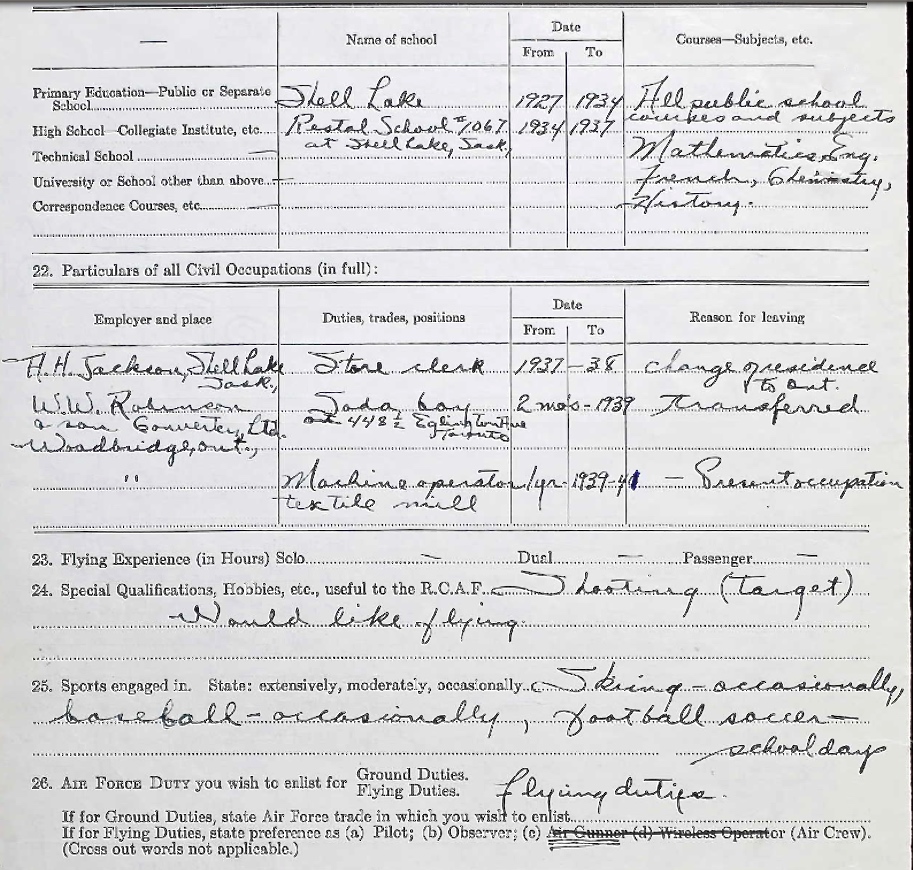 — Name of school Date From To Courses—Subjects, etc.
Primary Education—Public or Separate School Shell Lake 1927 1934 All public school courses and subjects
High School—Collegiate Institute, etc. School #1067 at Shell Lake, Sask, 1934 1937
Technical School — Mathematics, Eng.
University or School other than above — French, Chemistry,
Correspondence Courses, etc. — History.
22. Particulars of all Civil Occupations (in full):
Employer and place Duties, trades, positions Date From To Reason for leaving
H.H. Jackson, Shell Lake Sask, Store clerk 1937 -38 change of residence to Ont.
W.W. Robinson Soda boy 2 mo's - 1939 Transferred
& son Converter, Ltd. at 448½ Eglington Ave Toronto
Woodbridge, Ont.,
" Machine operator 1 yr - 1939-41 - Present occupation
textile mill
23. Flying Experience (in Hours) Solo — Dual — Passenger —
24. Special Qualifications, Hobbies, etc., useful to the R.C.A.F. Shooting (Target)
Would like flying.
25. Sports engaged in. State: extensively, moderately, occasionally. Skiing - occasionally,
baseball - occasionally, football soccer -
school days
26. AIR FORCE DUTY you wish to enlist for Ground Duties. Flying Duties. Flying duties.
If for Ground Duties, state Air Force trade in which you wish to enlist
If for Flying Duties, state preference as (a) Pilot; (b) Observer; (c) Air Gunner (d) Wireless Operator (Air Crew).
(Cross out words not applicable.)